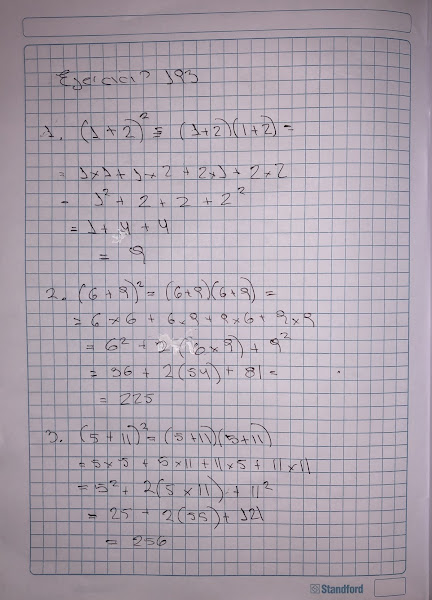 Ejercicio 193
1. (1+2)² = (1+2)(1+2) =
= 1x1 + 1x2 + 2x1 + 2x2
= 1² + 2 + 2 + 2²
= 1 + 4 + 4
= 9
2. (6+9)² = (6+9)(6+9) =
= 6x6 + 6x9 + 9x6 + 9x9
= 6² + 2(6x9) + 9²
= 36 + 2(54) + 81 =
= 225
3. (5+11)² = (5+11)(5+11)
= 5x5 + 5x11 + 11x5 + 11x11
= 5² + 2(5x11) + 11²
= 25 + 2(55) + 121
= 256
Standford